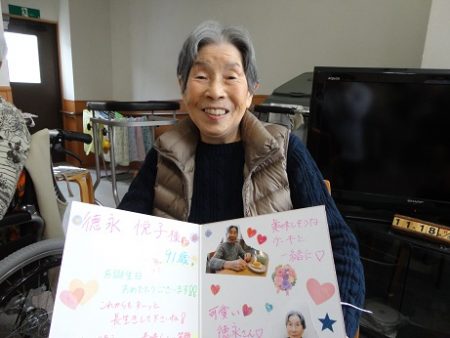 徳永 悦子様
91歳
お誕生日
おめでとうございます
これからもずーっと
長生きして下さいね!
美味しそうな
ケーキと
一緒に♡
可愛い
徳永さん♡
AQUOS
11.18